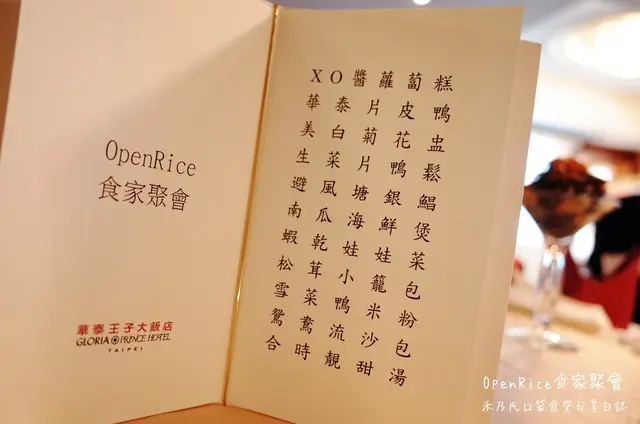 OpenRice
食家聚會
華泰王子大飯店
GLORIA PRINCE HOTEL
TAIPEI
XO醬蘿蔔糕
華泰片皮鴨
美白菊花盅
生菜片鴨鬆
避風塘銀鯧
南瓜海鮮煲
蝦乾娃娃菜
松茸小籠包
雪菜鴨米粉
鴛鴦流沙包
合時靚甜湯
OpenRice食家聚會
禾乃氏口築食堂分享日誌